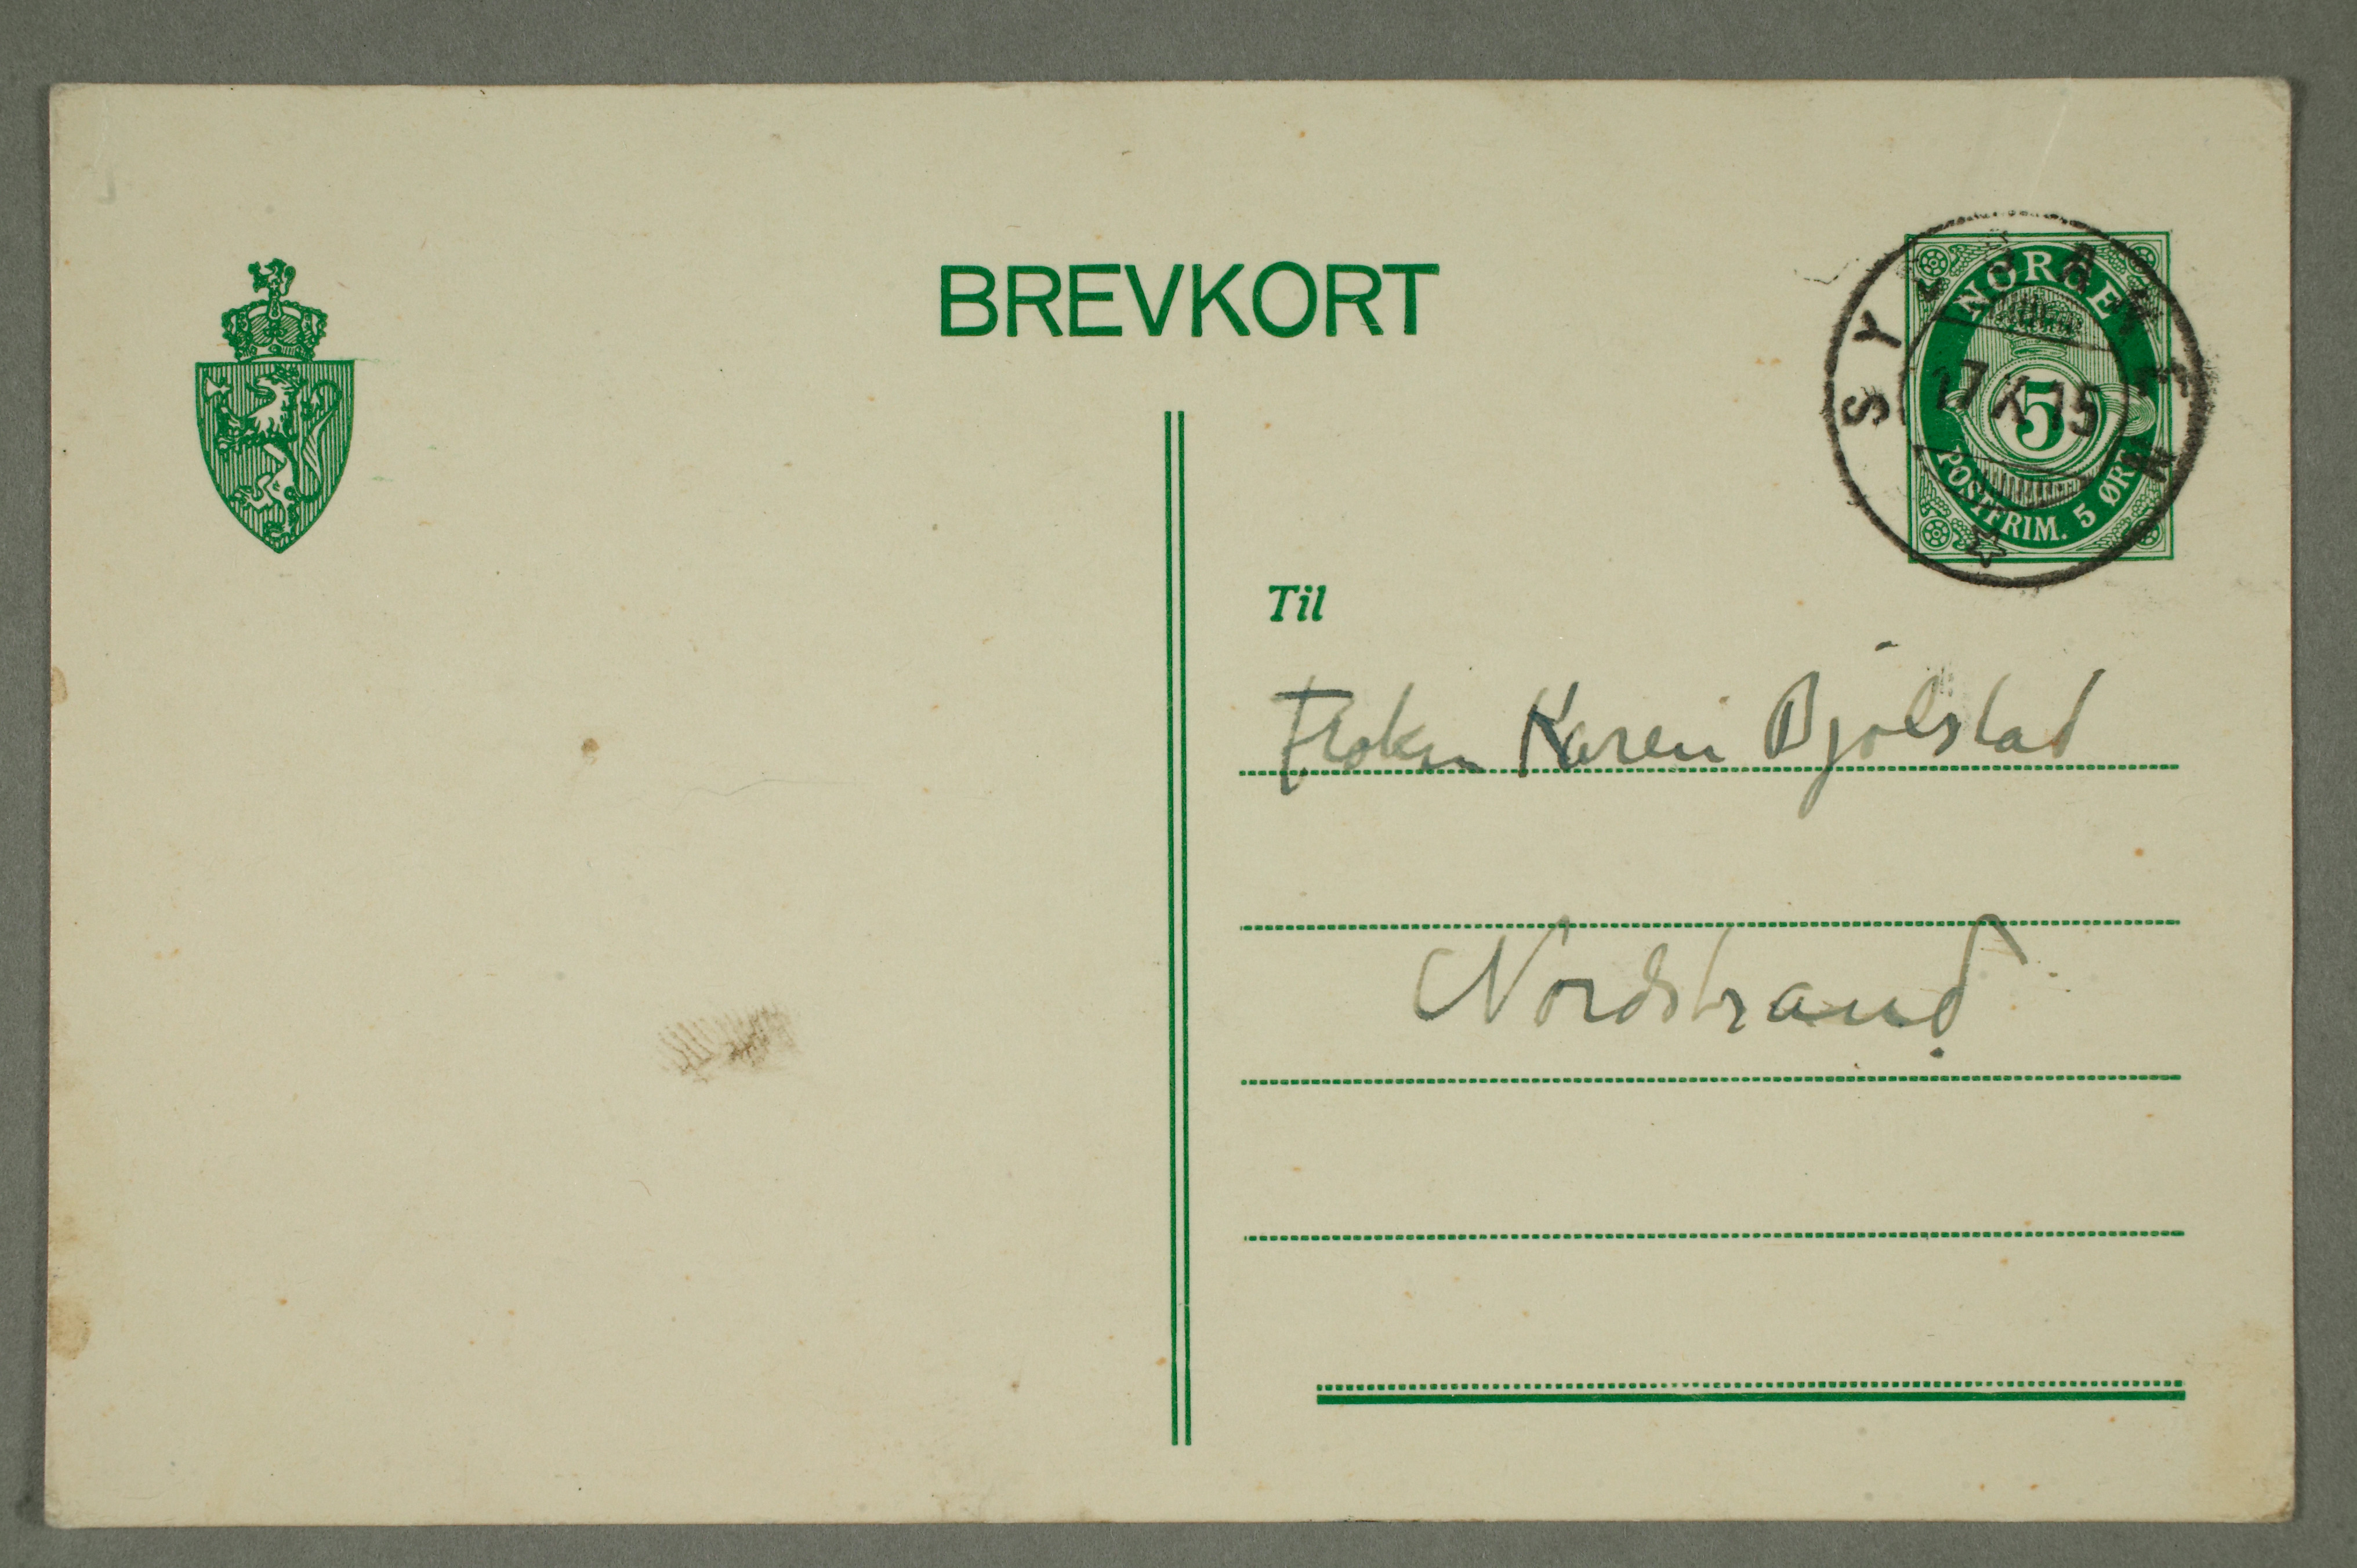 BREVKORT
NORGE
5
POSTFRIM. 5 ØRE
17 X 15
Til
Frøken Karen Bjølstad
Nordstrand